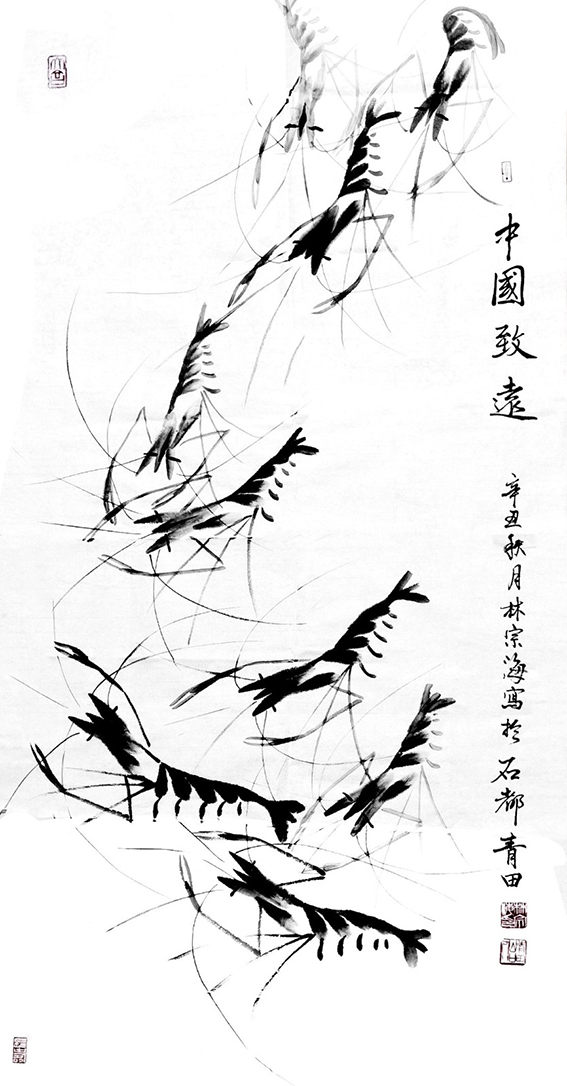 中國致遠
辛丑秋月林宗海寫於石都青田